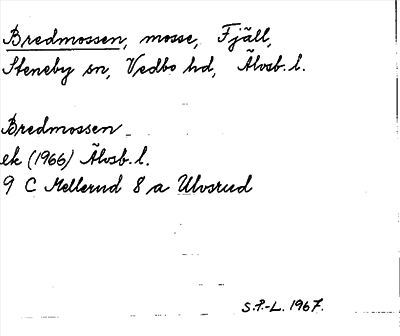 Bredmossen, mosse, Fjäll,
Steneby sn, Vedbo hd, Älvsb. l.
Bredmossen
ek (1966) Älvsb. l.
9 C Mellerud 8 a Ulvsrud
S.P.-L. 1967.